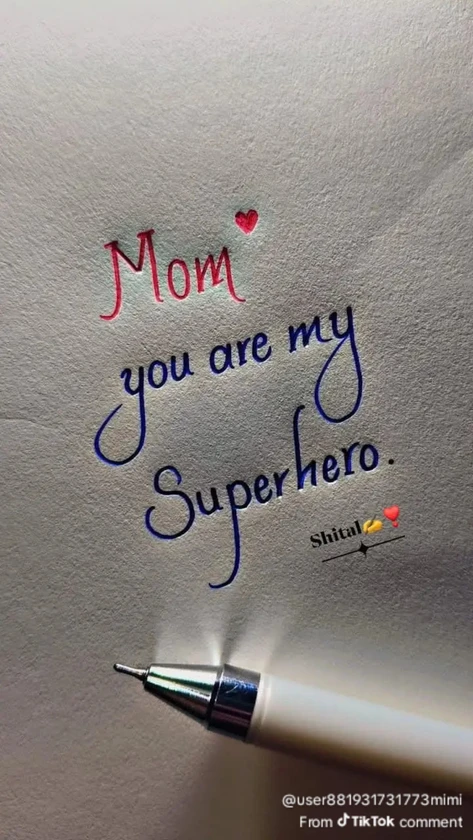 Mom ❤
you are my
Superhero.
Shital✍️❣️
@user881931731773mimi
From TikTok comment